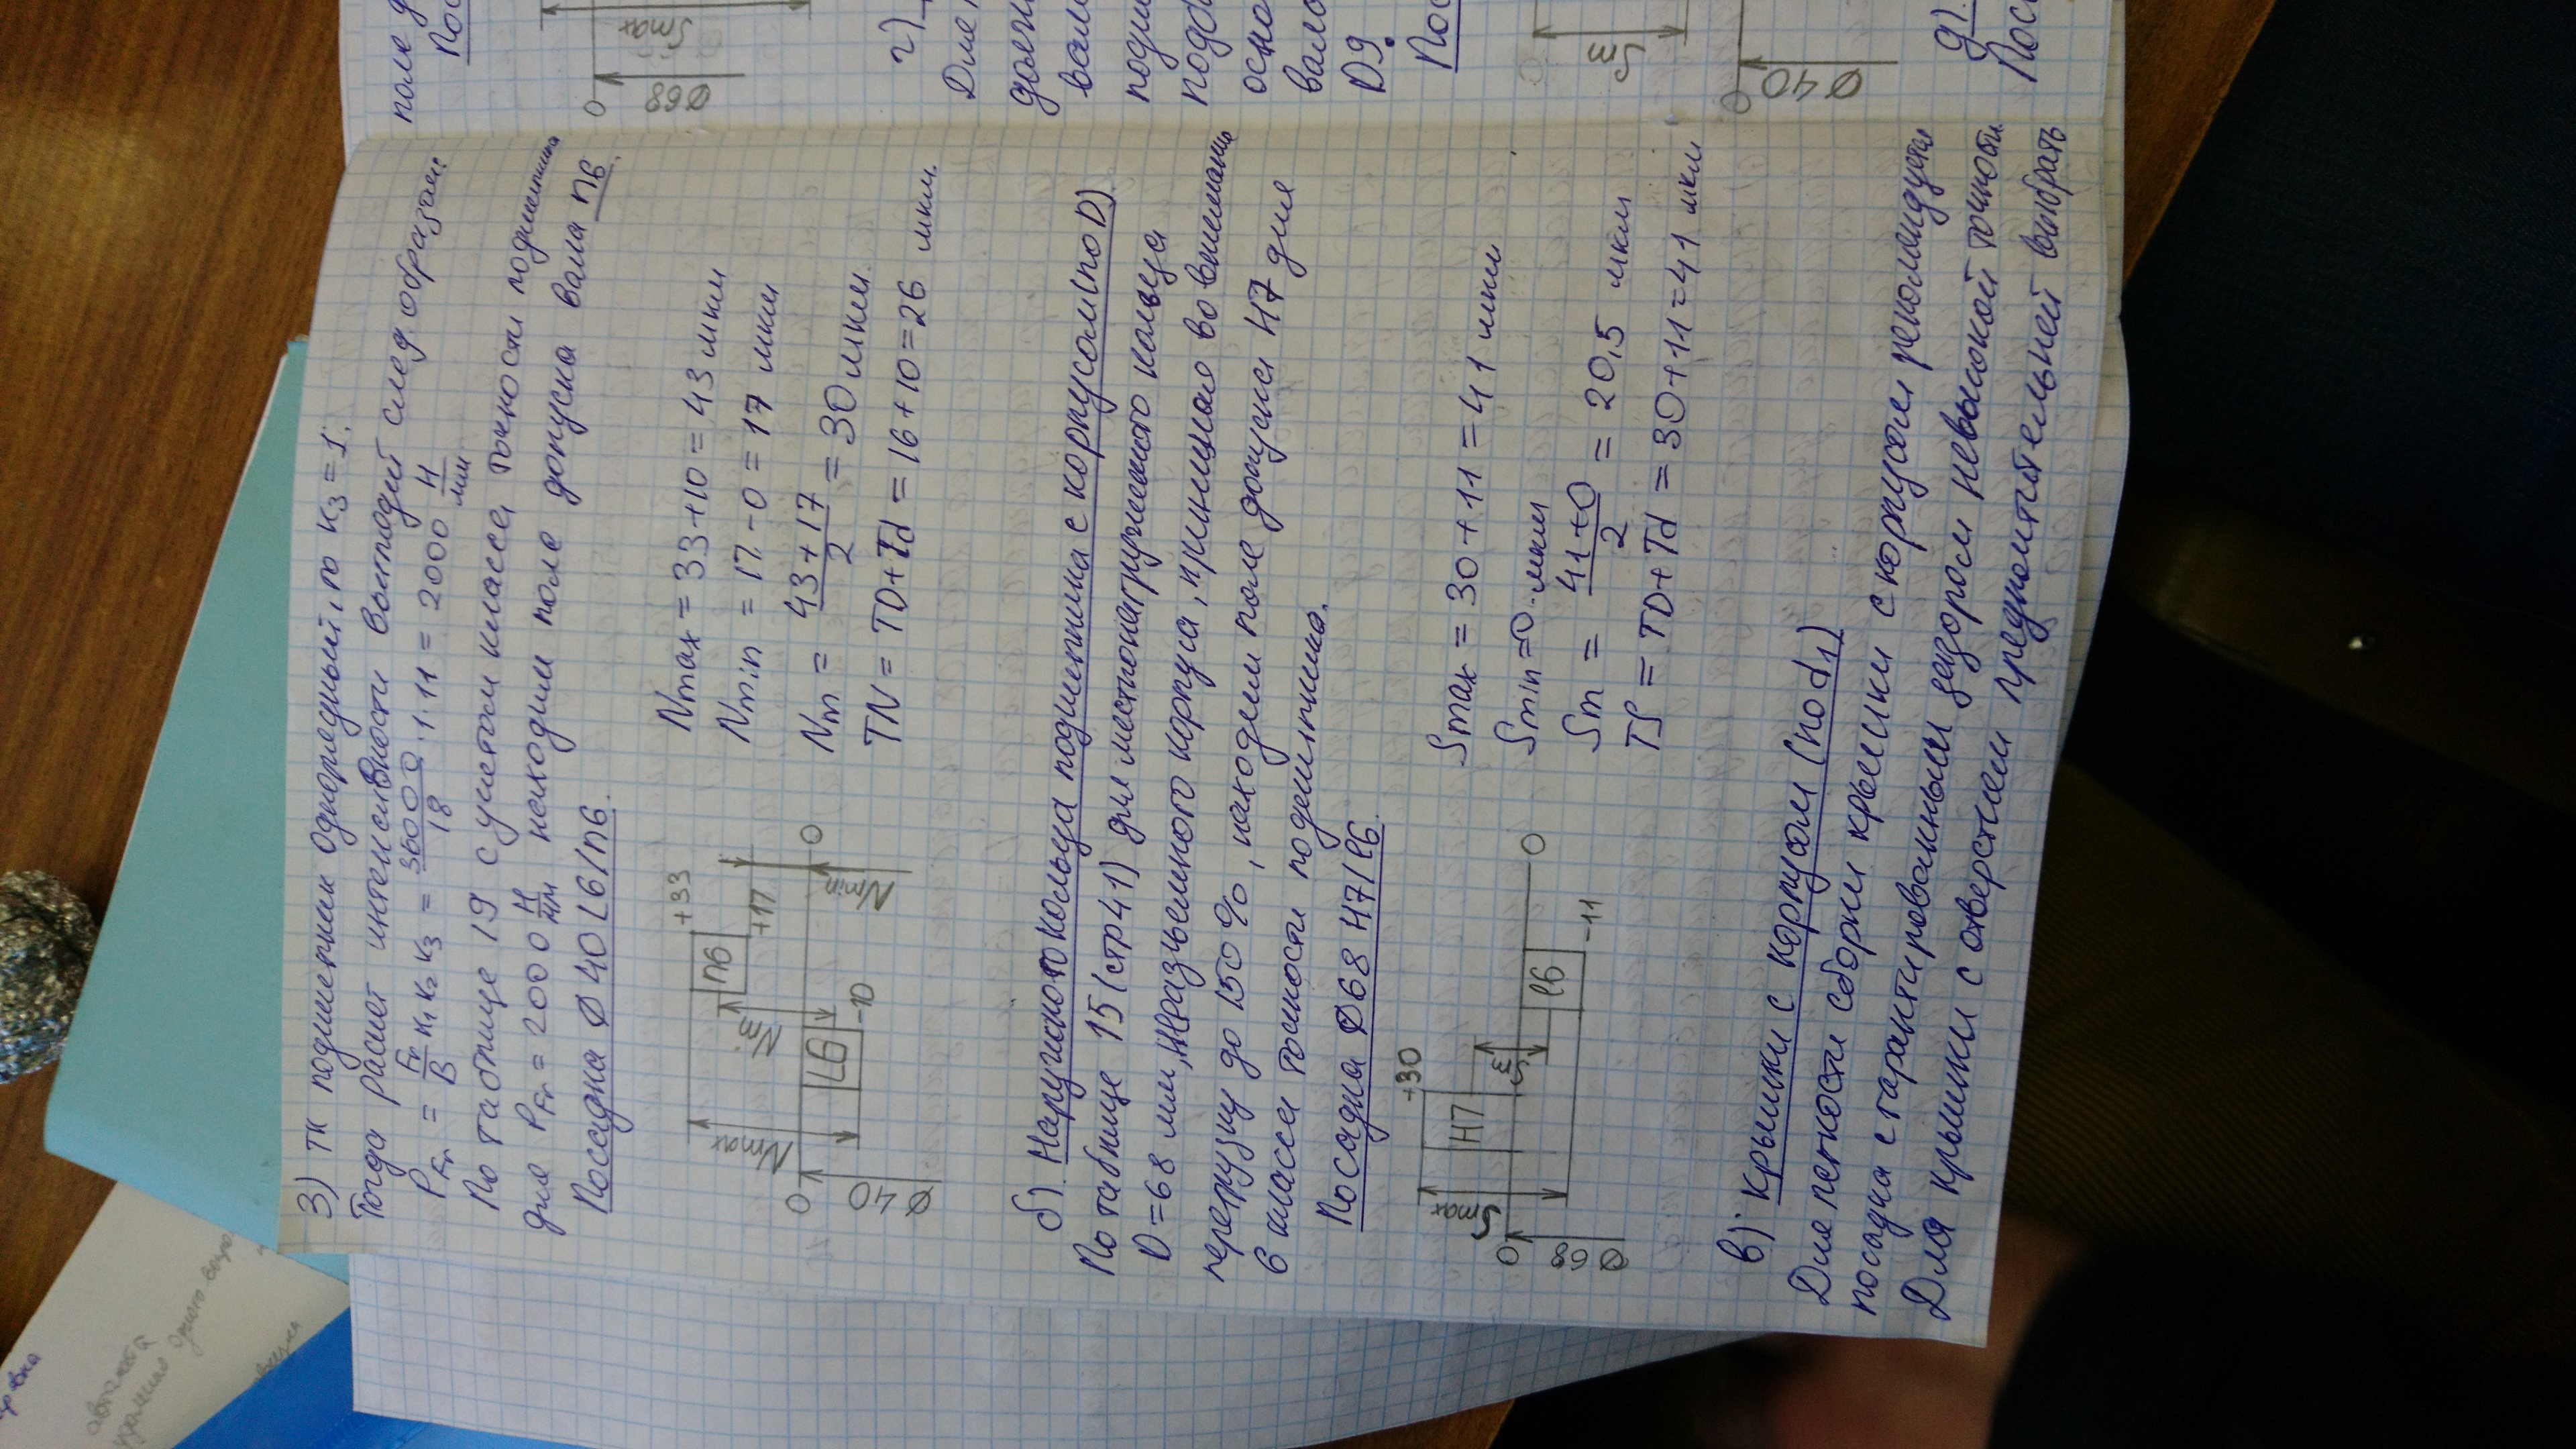 3) тк подшипник однорядный, то к₃ = 1.
Тогда расчет интенсивности выглядит след. образом:
P_Fr = Fr/B к₁ к₂ к₃ = 36000/18 · 1 · 1 1 = 2000 Н/мм
По таблице 19 с учетом класса точности подшипника
для P_Fr = 2000 Н/мм находим поле допуска вала n6.
Посадка Ø 40 L6/n6.
+33
n6
+17
Nmax
Nm
0
0
L6
-10
Nmin
Ø 40
Nmax = 33+10 = 43 мкм
Nmin = 17-0 = 17 мкм
Nm = 43+17/2 = 30 мкм.
TN = TD+Td = 16+10=26 мкм.
б). Наружного кольца подшипника с корпусом (по D)
По таблице 15 (стр 41) для местнонагруженного кольца
D=68 мм, неразъемного корпуса, принимая во внимание
перегрузку до 150%, находим поле допуска H7 для
6 класса точности подшипника.
Посадка Ø68 H7/l6.
+30
H7
Smax
Sm
0
0
l6
-11
Ø 68
Smax = 30+11 = 41 мкм
Smin=0 мкм
Sm = 41+0/2 = 20,5 мкм
TS = TD+Td = 30+11=41 мкм
в) Крышки с корпусом (по d₁)
Для легкости сборки крышки с корпусом рекомендуется
посадка с гарантированным зазором невысокой точности.
Для крышки с отверстием предпочтительней выбрать
поле
0
Ø68
Smax
г)
Для
вала
D9.
Sm
0
Ø 40
д).